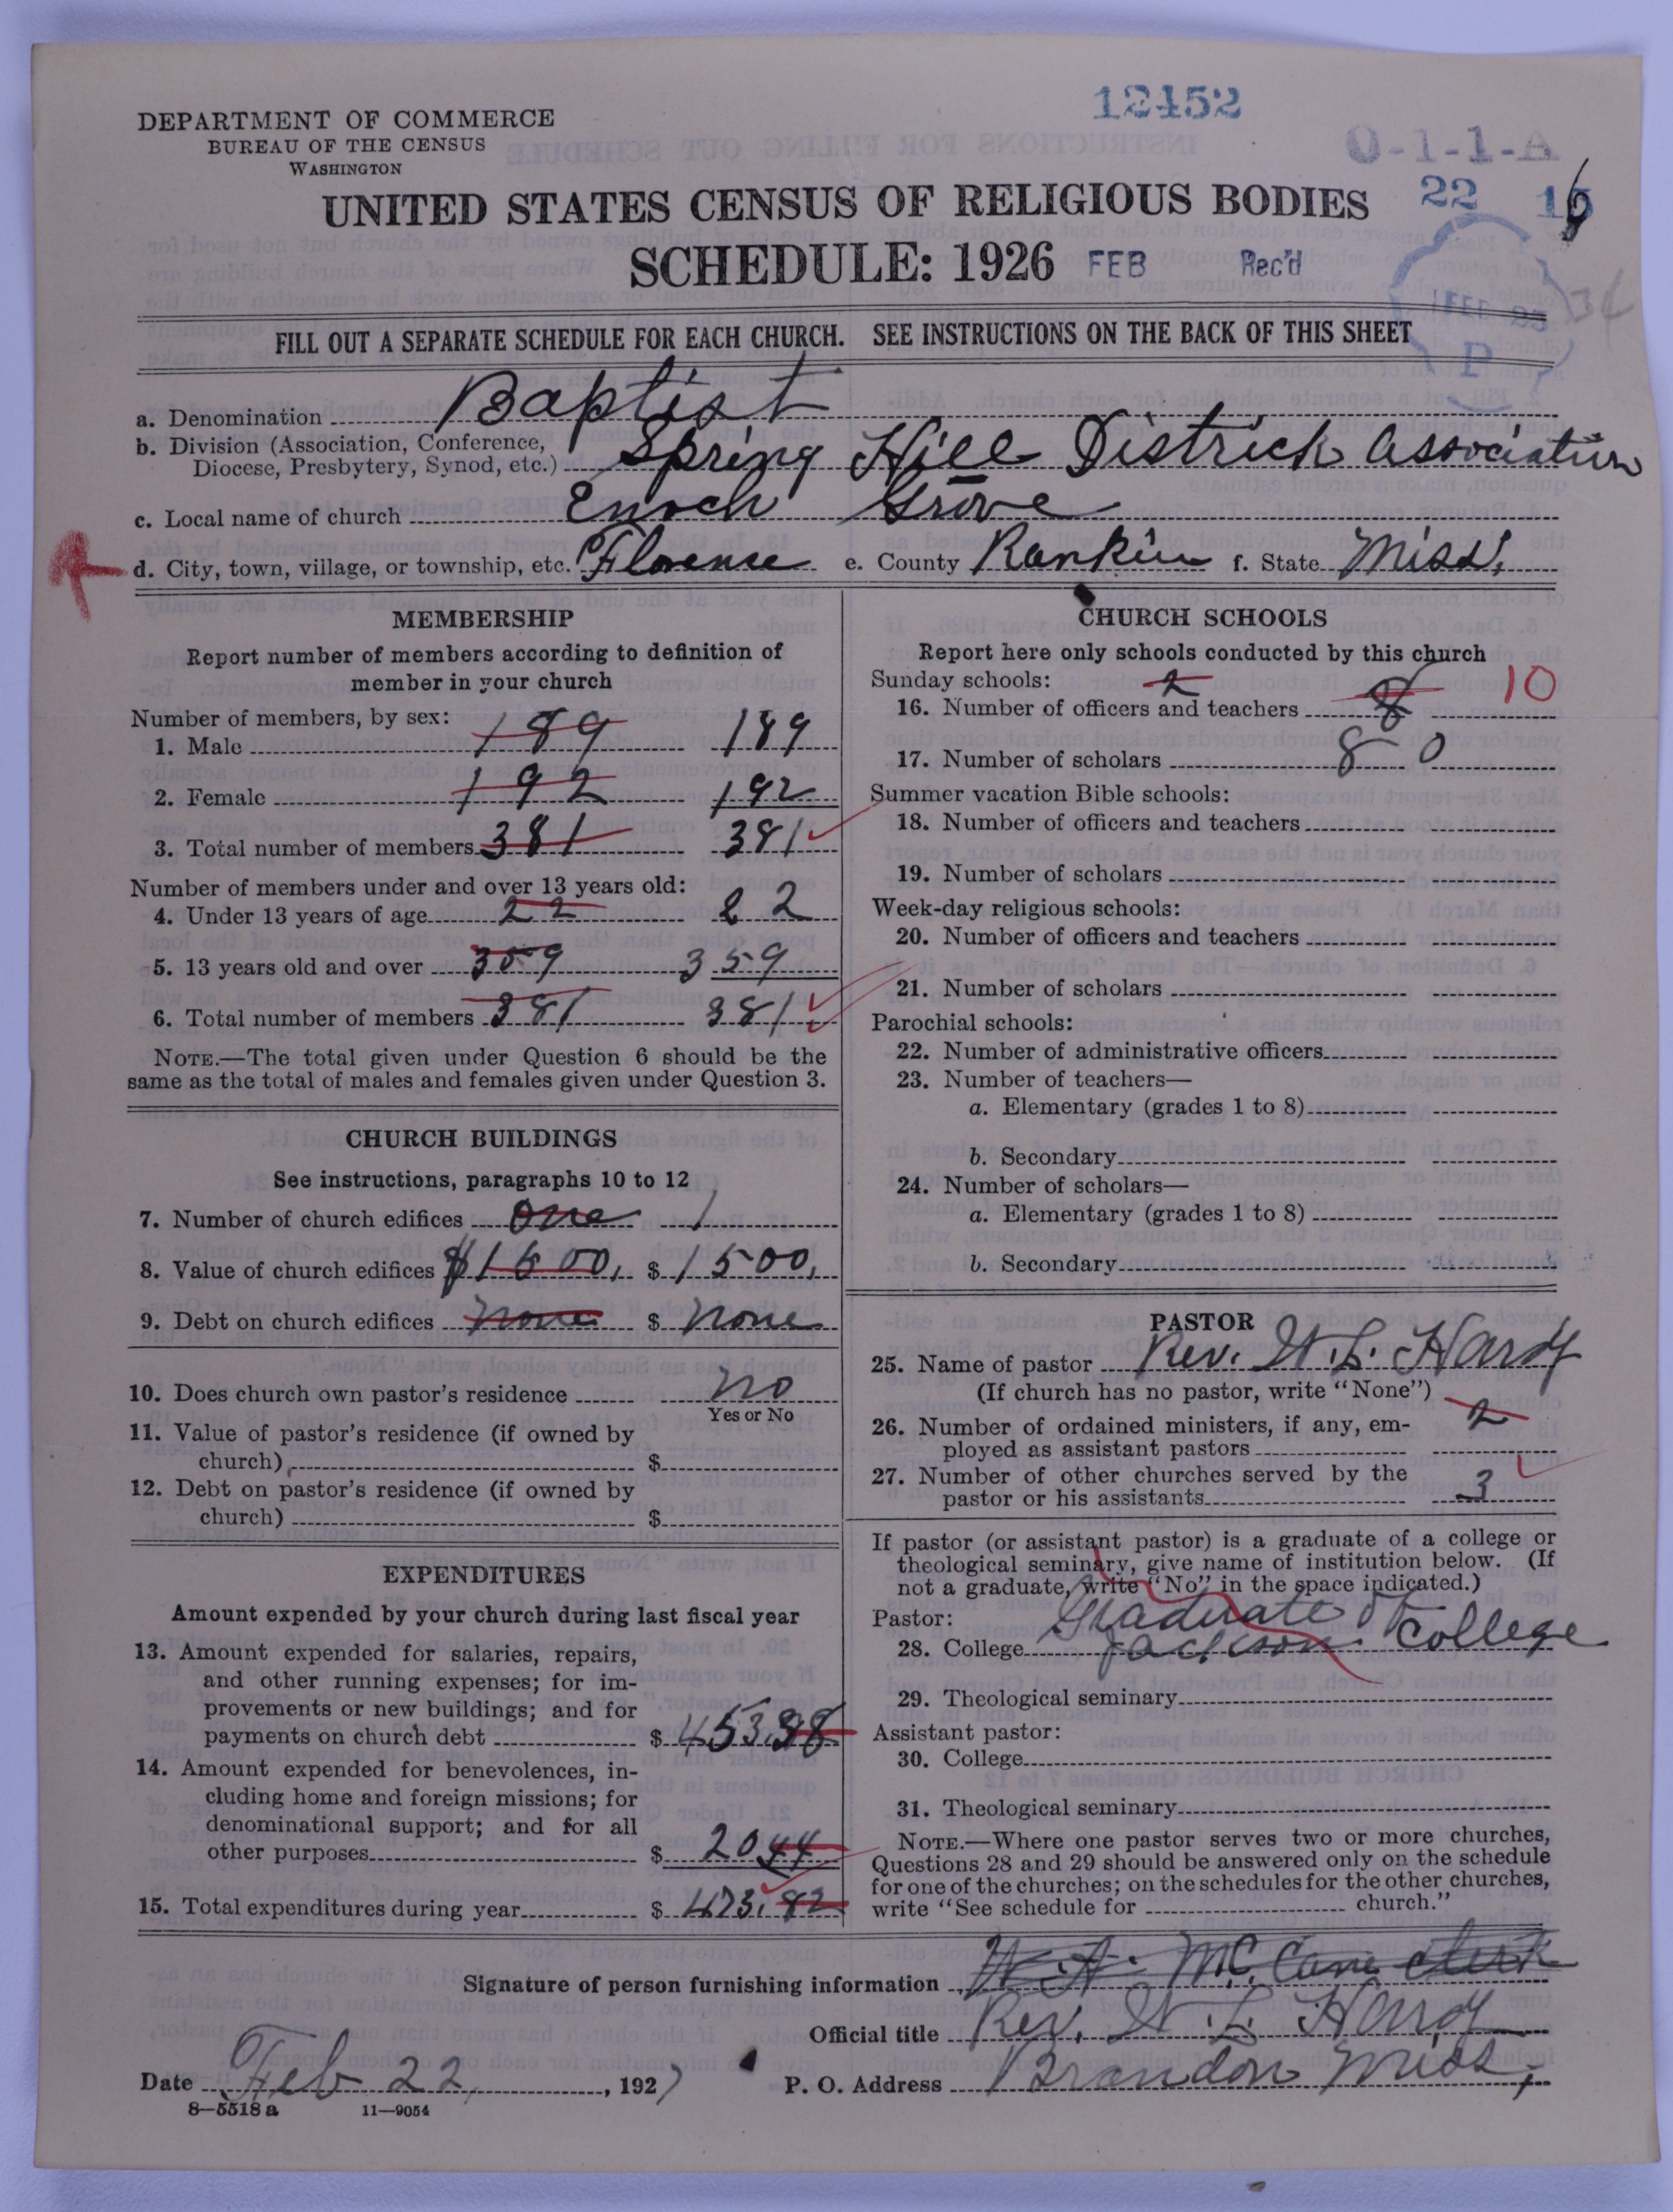 12452
DEPARTMENT OF COMMERCE
BUREAU OF THE CENSUS
WASHINGTON
O-1-1-A
22 16
UNITED STATES CENSUS OF RELIGIOUS BODIES
SCHEDULE: 1926 FEB Rec'd
FILL OUT A SEPARATE SCHEDULE FOR EACH CHURCH. SEE INSTRUCTIONS ON THE BACK OF THIS SHEET
P
a. Denomination Baptist
b. Division (Association, Conference,
Diocese, Presbytery, Synod, etc.) Spring Hill Districk Association
c. Local name of church Enoch Grove
d. City, town, village, or township, etc. Florense e. County Rankin f. State Miss.
MEMBERSHIP
Report number of members according to definition of
member in your church
Number of members, by sex:
1. Male 189 189
2. Female 192 192
3. Total number of members 381 381
Number of members under and over 13 years old:
4. Under 13 years of age 22 22
5. 13 years old and over 359 359
6. Total number of members 381 381
NOTE.—The total given under Question 6 should be the
same as the total of males and females given under Question 3.
CHURCH BUILDINGS
See instructions, paragraphs 10 to 12
7. Number of church edifices one 1
8. Value of church edifices $1500. $ 1500.
9. Debt on church edifices none $ none
10. Does church own pastor's residence no
Yes or No
11. Value of pastor's residence (if owned by
church) $
12. Debt on pastor's residence (if owned by
church) $
EXPENDITURES
Amount expended by your church during last fiscal year
13. Amount expended for salaries, repairs,
and other running expenses; for im-
provements or new buildings; and for
payments on church debt $ 453.38
14. Amount expended for benevolences, in-
cluding home and foreign missions; for
denominational support; and for all
other purposes $ 20 44
15. Total expenditures during year $ 473.82
CHURCH SCHOOLS
Report here only schools conducted by this church
Sunday schools: 2
16. Number of officers and teachers 8 10
17. Number of scholars 80
Summer vacation Bible schools:
18. Number of officers and teachers
19. Number of scholars
Week-day religious schools:
20. Number of officers and teachers
21. Number of scholars
Parochial schools:
22. Number of administrative officers
23. Number of teachers—
a. Elementary (grades 1 to 8)
b. Secondary
24. Number of scholars—
a. Elementary (grades 1 to 8)
b. Secondary
PASTOR
25. Name of pastor Rev. W. L. Hardy
(If church has no pastor, write "None")
26. Number of ordained ministers, if any, em- 2
ployed as assistant pastors
27. Number of other churches served by the
pastor or his assistants 3
If pastor (or assistant pastor) is a graduate of a college or
theological seminary, give name of institution below. (If
not a graduate, write "No" in the space indicated.)
Pastor: Graduate of
28. College Jackson College
29. Theological seminary
Assistant pastor:
30. College
31. Theological seminary
NOTE.—Where one pastor serves two or more churches,
Questions 28 and 29 should be answered only on the schedule
for one of the churches; on the schedules for the other churches,
write "See schedule for church."
Signature of person furnishing information W. A. McCane clerk
Official title Rev. W. L. Hardy
Date Feb 22, 1927 P. O. Address Brandon Miss,
8—5518 a 11—9054